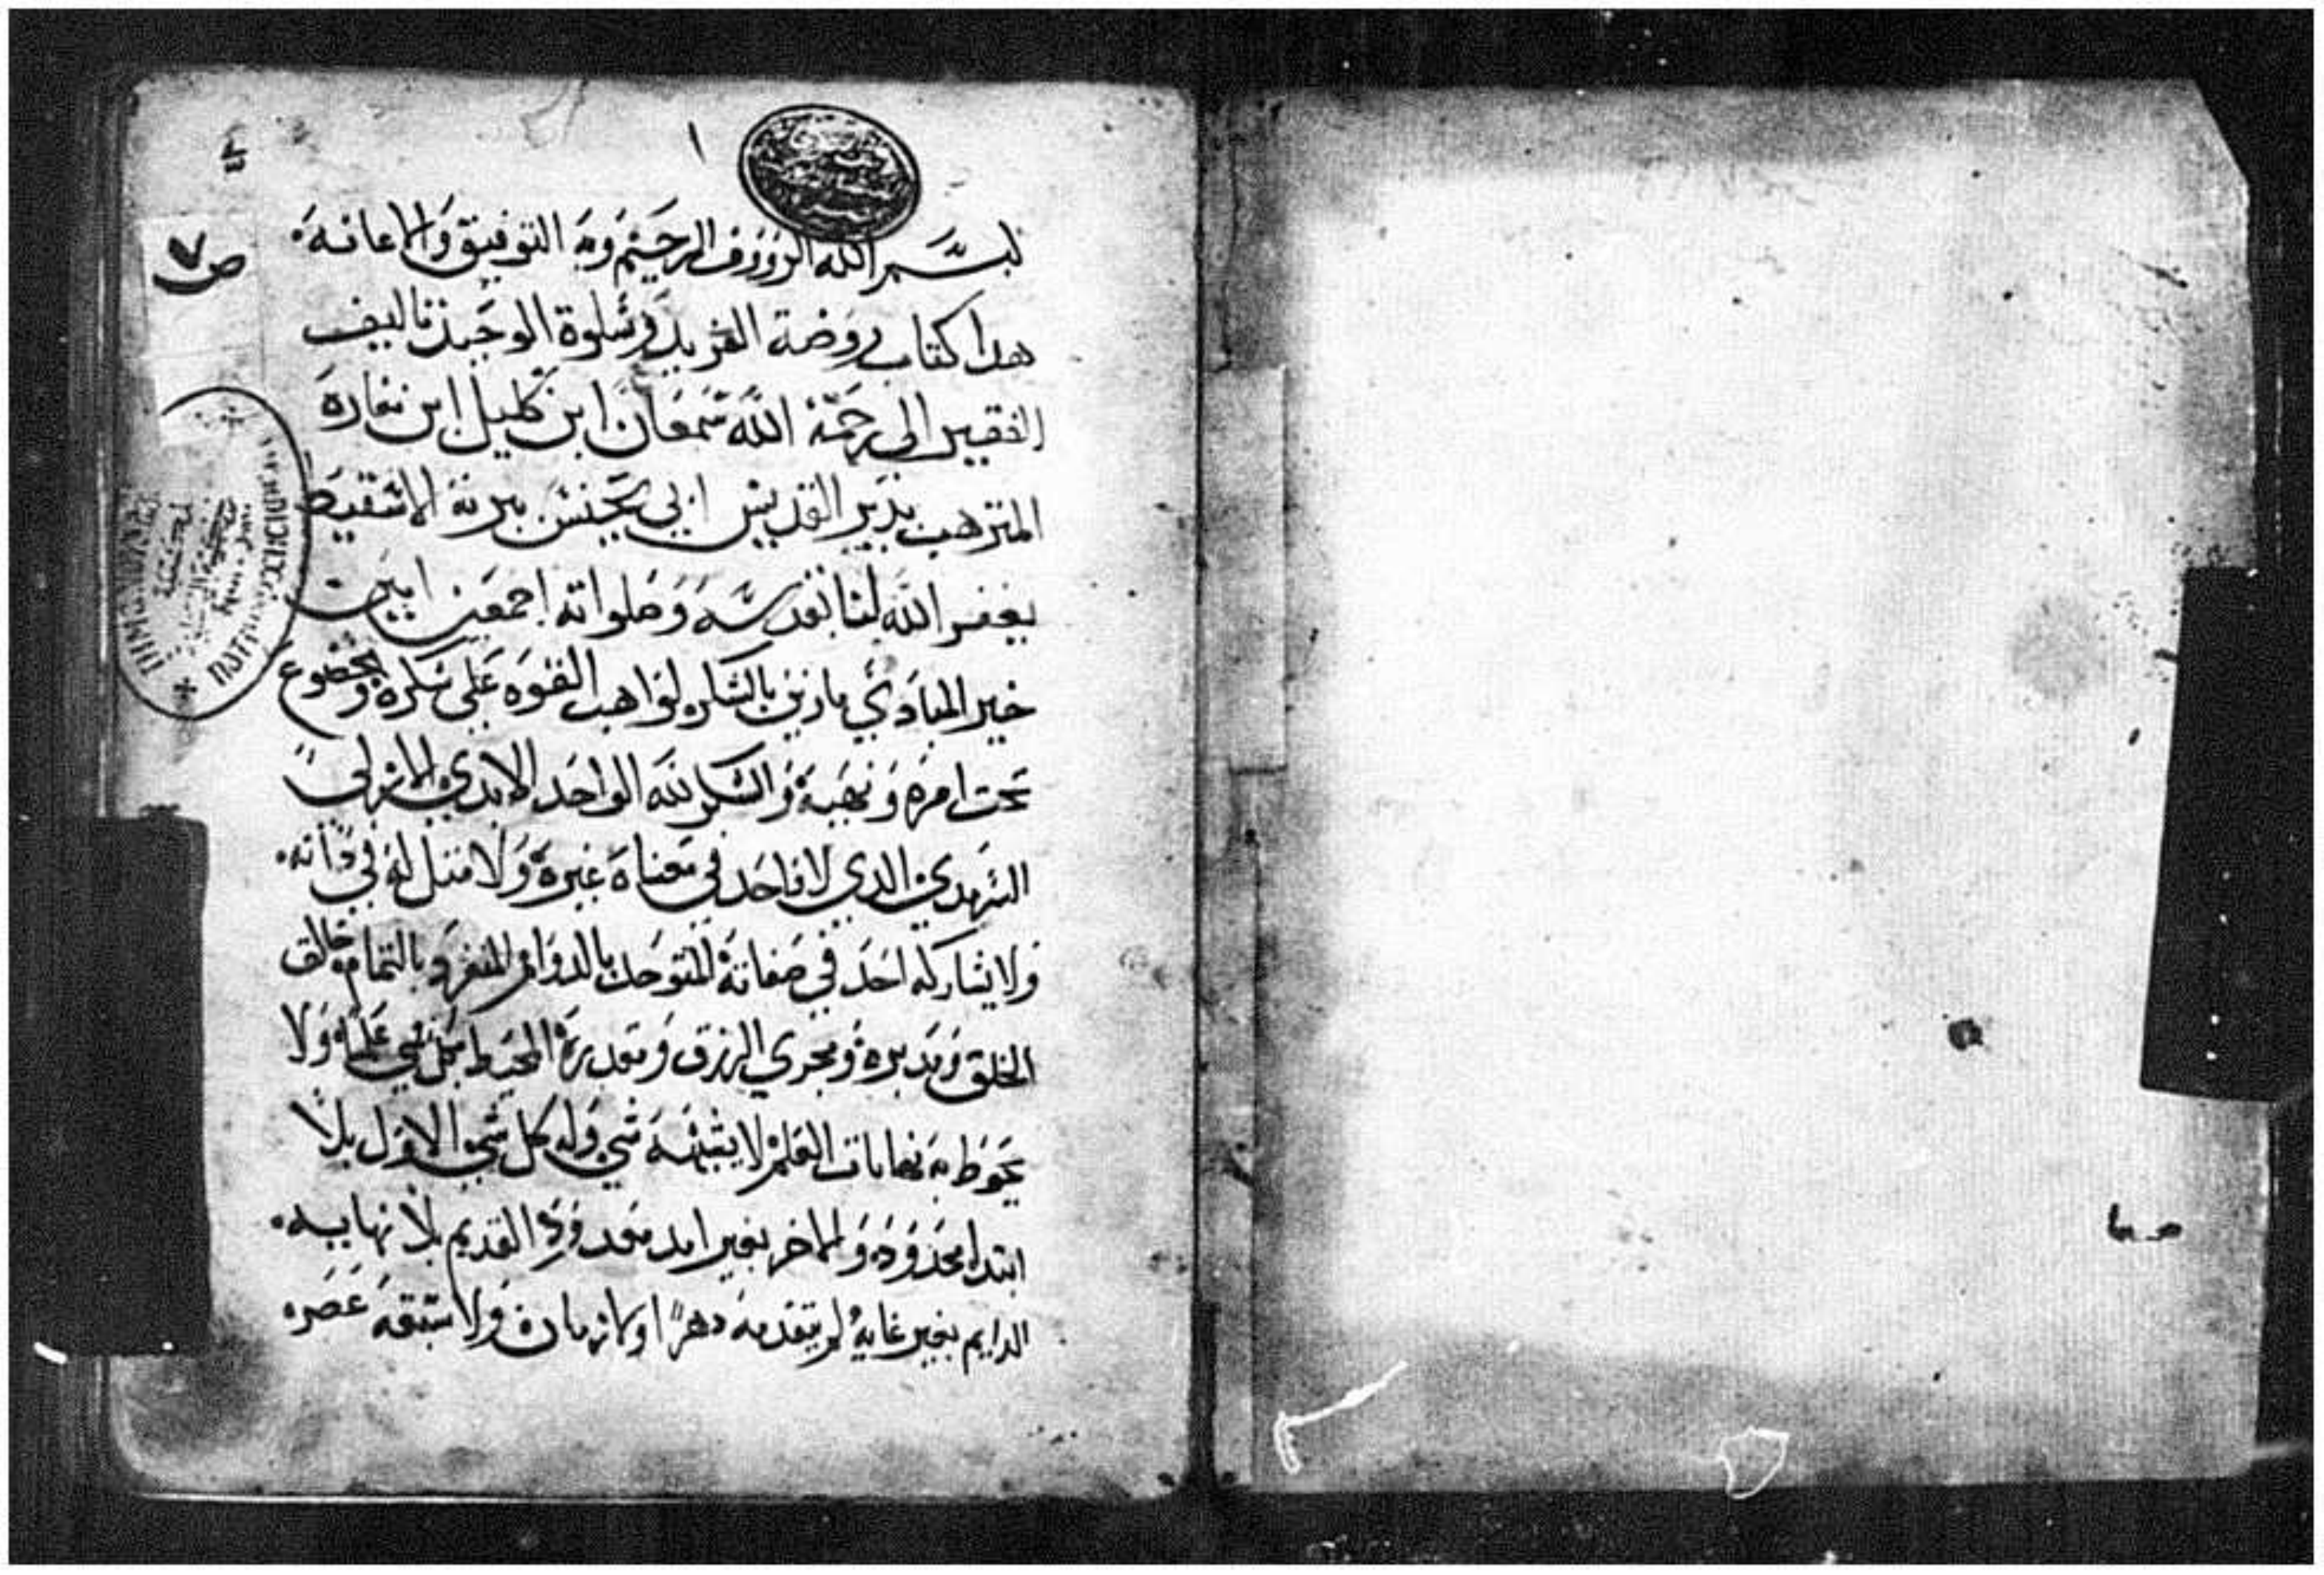 ١
بسم الله الرووف الرحيم وبه التوفيق والاعانه
هدا كتاب روضة الفريد وسلوة الوحيد تاليف
الفقير الى رحمة الله سمعان ابن كليل ابن مقاره
المترهب بدير القديس ابي يحنس ببرية الاسقيط
يغفر الله لنا بقدسه وصلواته اجمعين امين
خير المبادي مازين بالشكر لواهب القوه على شكره وبخضوع
تحت امره ونهيه والشكر لله الواحد الابدي الازلي
السرمدي الدي لا واحد في معناه غيره ولا مثل له في داته
ولا يشاركه احد في صفاته المتوحد بالدوام المنفرد بالتمام خالق
الخلق ومدبره ومجري الرزق ومقدره المحيط بكل شي علما ولا
يحوط به نهايات العلم لا يشبهه شي وله كل شي الاول بلا
ابتدا محدوده والاخر بغير امد معدود القديم بلا نهايه
الدايم بغير غايه لم يتقدمه دهرا او لا زمان ولا سبقه عصره
ص ٧